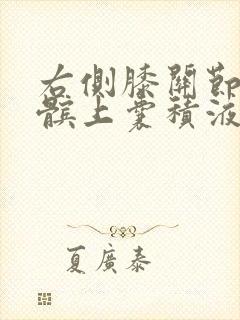 右側膝關節
髕上囊積液
夏廣泰